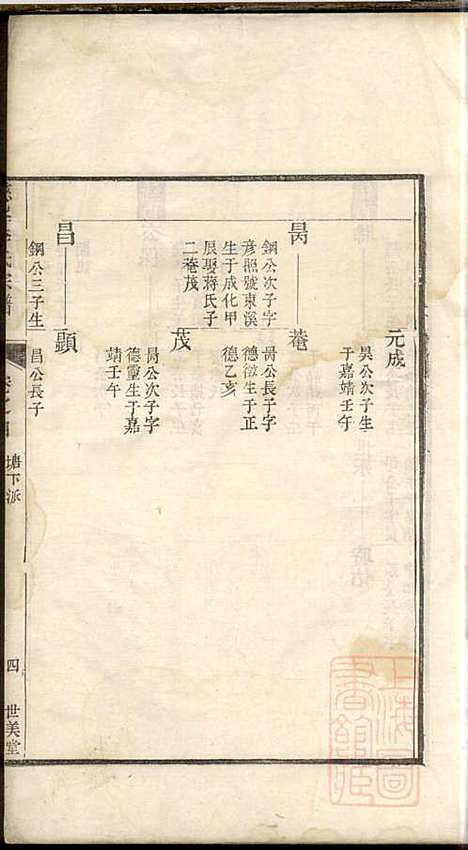 元成
昊公次子生
于嘉靖壬午
昺
鋼公次子字
彥照號東溪
生于成化甲
辰娶蔣氏子
二菴茂
菴
昺公長子字
德徵生于正
德乙亥
茂
昺公次子字
德重生于嘉
靖壬午
昌
鋼公三子生
顯
昌公長子
塘下派
四
世美堂
上海圖書館藏